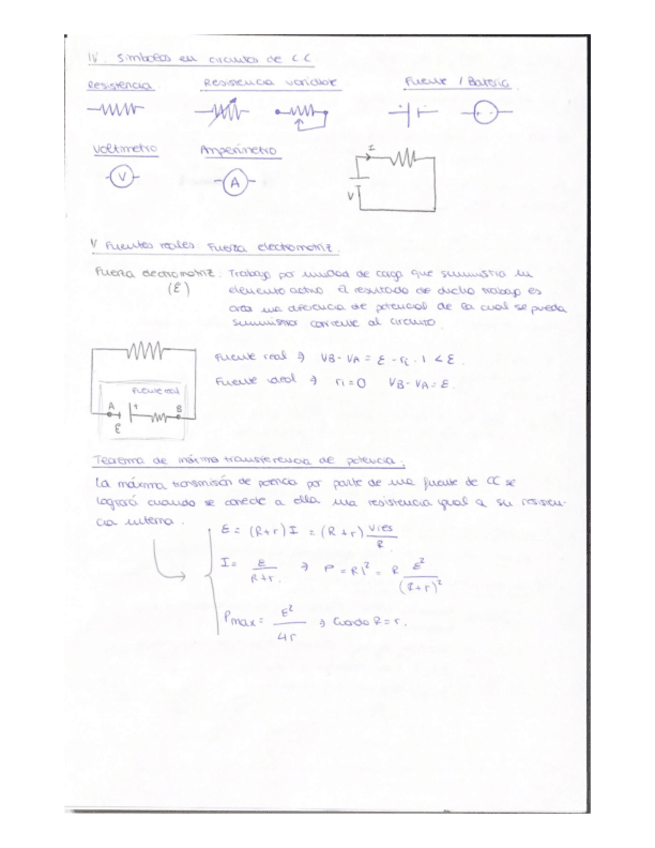 IV. Símbolos en circuitos de CC.
Resistencia Resistencia variable Fuente / Batería
Voltímetro Amperímetro
V
A
I
V
V Fuentes reales: Fuerza electromotriz.
Fuerza electromotriz: Trabajo por unidad de carga que suministra un
(ε) elemento activo. El resultado de dicho trabajo es
crea una diferencia de potencial de la cual se pueda
suministrar corriente al circuito.
Fuente real → VB - VA = ε - ri · I < ε.
Fuente ideal → ri = 0 VB - VA = ε.
Fuente real
A + B
ε
Teorema de máxima transferencia de potencia:
La máxima transmisión de potencia por parte de una fuente de CC se
logrará cuando se conecte a ella una resistencia igual a su resisten-
cia interna.
ε = (R+r) I = (R+r) Vres/R
I = ε/R+r. → P = RI² = R ε²/(R+r)²
Pmax = ε²/4r → Cuando R = r.